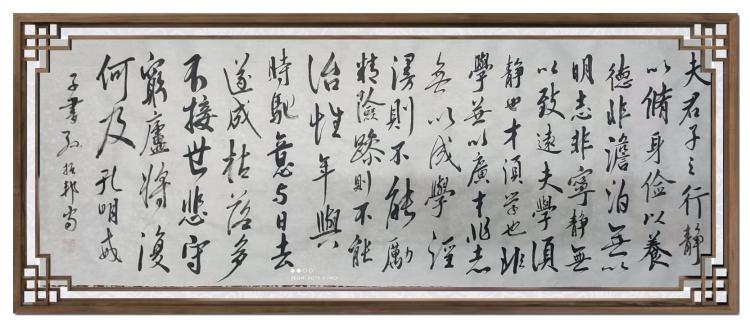 夫君子之行靜
以脩身儉以養
德非澹泊無以
明志非寧靜無
以致遠夫學須
靜也才須学也非
學無以廣才非志
無以成學淫
漫則不能勵
精險躁則不能
治性年與
時馳意与日去
遂成枯落多
不接世悲守
窮廬將復
何及孔明誡
子書